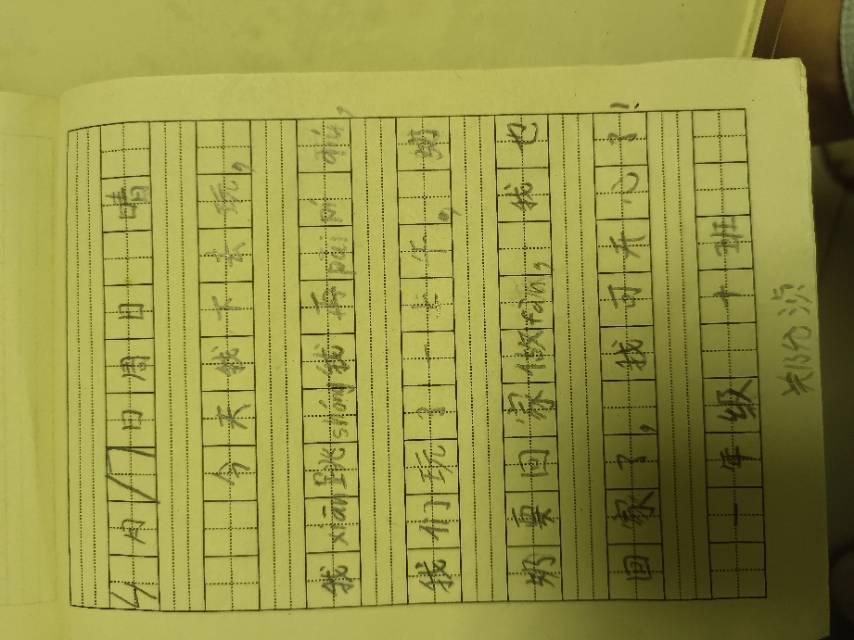 4月17日周日 晴
今天我下去玩，
我xiān跳shéng我再pāi pí qiú，
我们玩了一上午，奶
奶要回家做fàn，我也
回家了，我可开心了！
一年级 十班